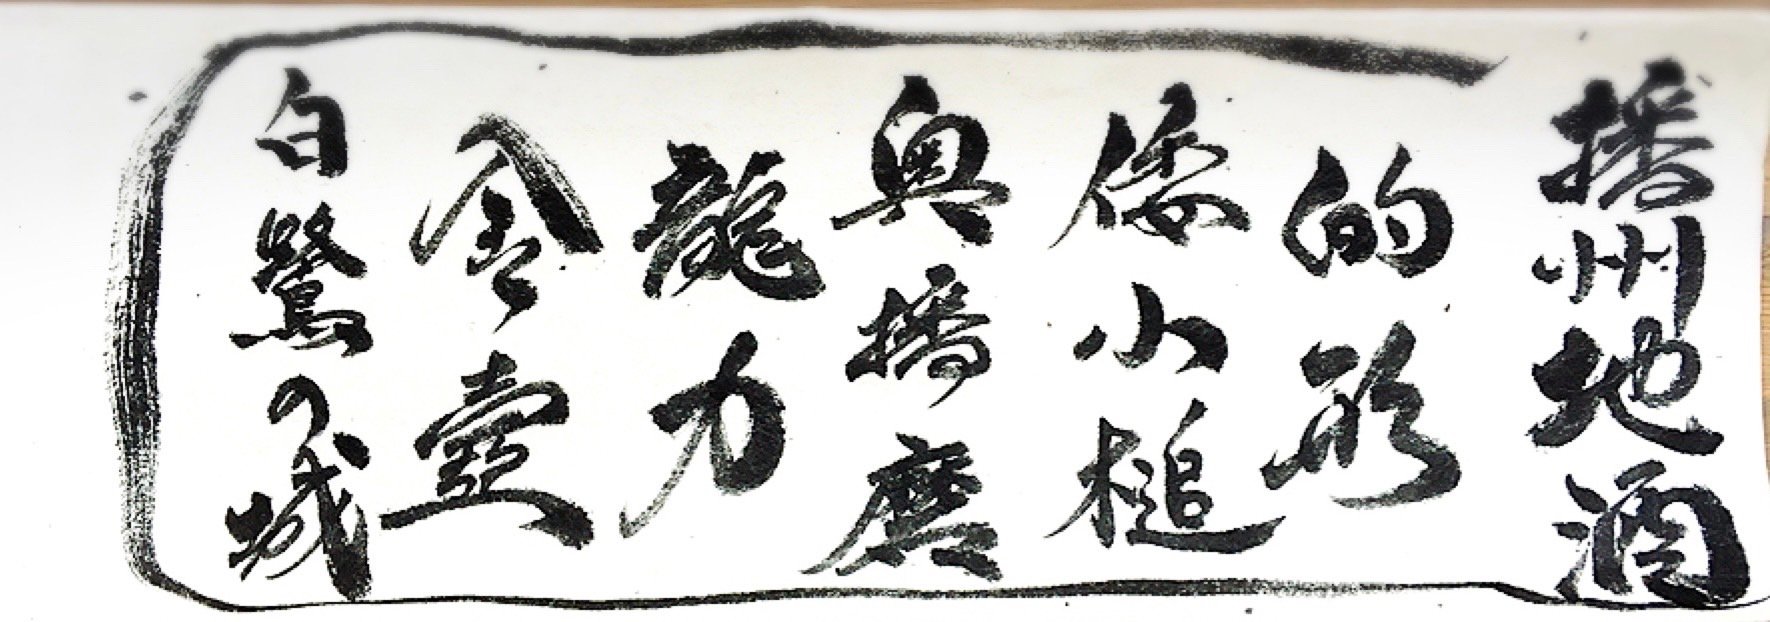 播州地酒
的形
倭小槌
奥播磨
龍力
金壷
白鷺の城